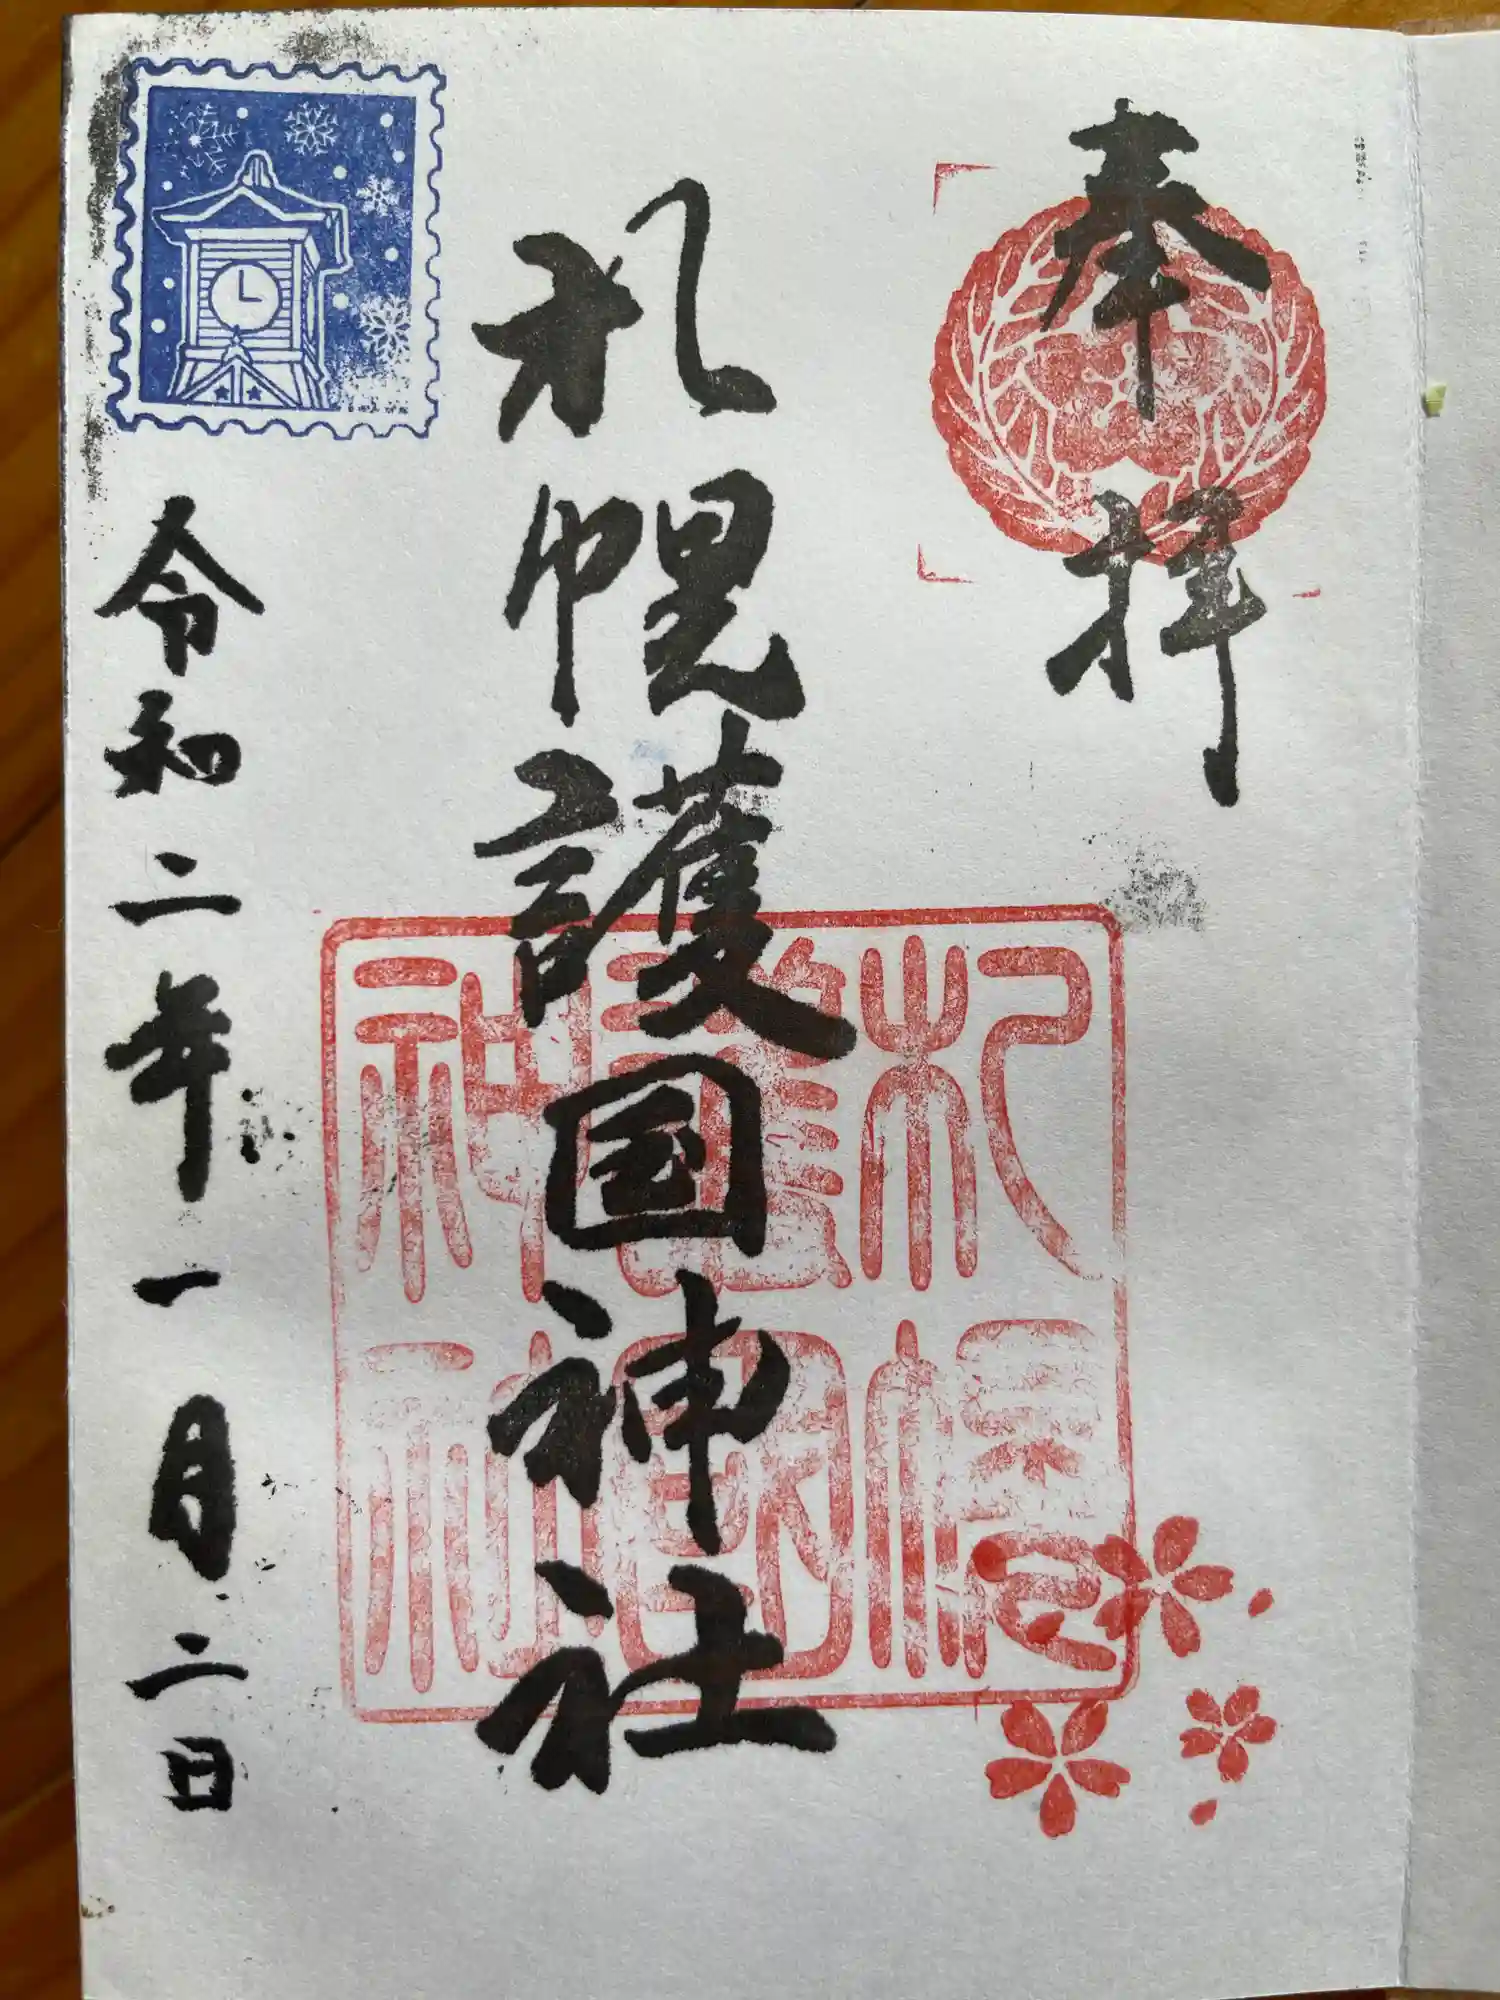 奉拝
札幌護国神社
令和二年一月二日
札幌
護國
神社